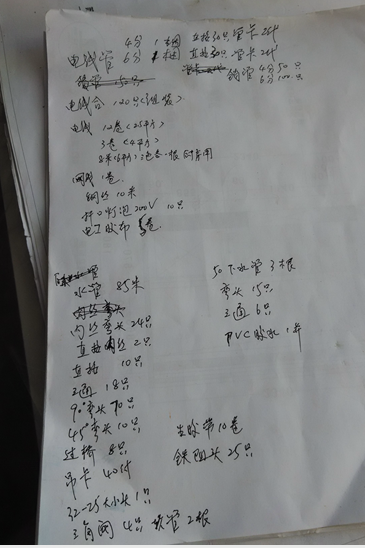 电线管 4分 1捆 直接30只 管卡2代
6分 1捆 直接30只 管卡2代
锁管 4分50只
6分100只
电线合 120只(组装)
电线 12卷(2.5平方)
3卷(4平方)
网线 1卷
钢丝 10米
灯泡 200V 10只
电工胶布 5卷
水管 85米
内丝弯头 24只
直接内丝 2只
直接 10只
三通 18只
90°弯头 70只
45°弯头 10只
过桥 8只
吊卡 40付
32-25大小头 1只
三角阀 4只 软管 2根
50下水管 3根
弯头 15只
三通 6只
PVC胶水 1
生胶带 10卷
铁闷头 25只